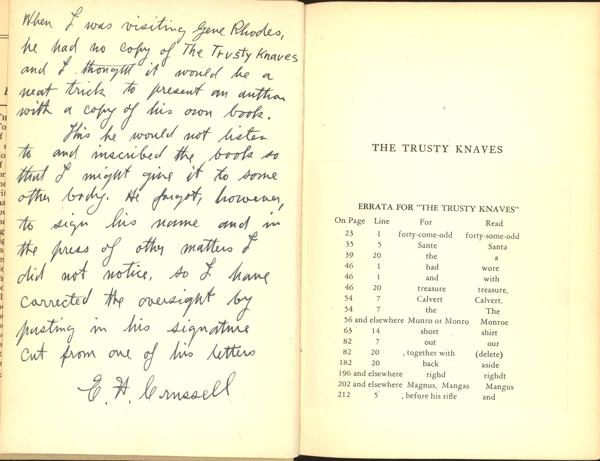 When I was visiting Gene Rhodes,
he had no copy of The Trusty Knaves
and I thought it would be a
neat trick to present an author
with a copy of his own book.
This he would not listen
to and inscribed the book so
that I might give it to some
other body. He forgot, however,
to sign his name and in
the press of other matters I
did not notice, so I have
corrected the oversight by
pasting in his signature
cut from one of his letters
E. H. Crussell
THE TRUSTY KNAVES
ERRATA FOR "THE TRUSTY KNAVES"
On Page Line For Read
23 1 forty-come-odd forty-some-odd
35 5 Sante Santa
39 20 the a
46 1 had wore
46 1 and with
46 20 treasure treasure,
54 7 Calvert Calvert.
54 7 the The
56 and elsewhere Munro or Monro Monroe
63 14 short shirt
82 7 out our
82 20 , together with (delete)
182 20 back aside
196 and elsewhere righd righdt
202 and elsewhere Magnus, Mangas Mangus
212 5 , before his rifle and